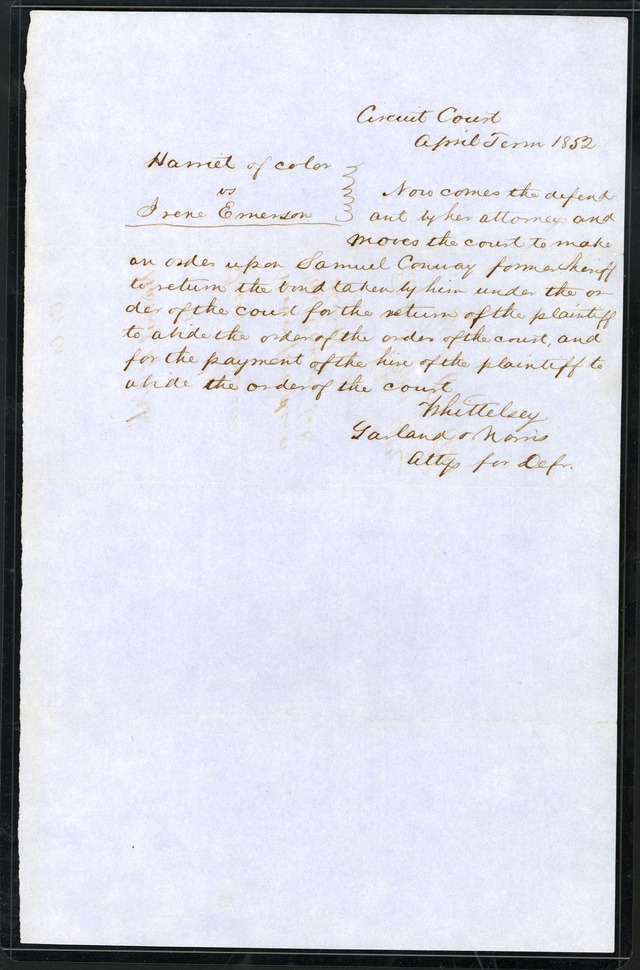 Circuit Court
April Term 1852
Harriet of color
vs
Irene Emerson
Now comes the defend
ant by her attorneys and
moves the court to make
an order upon Samuel Conway former sheriff
to return the bond taken by him under the or
der of the court for the return of the plaintiff
to abide the order of the order of the court, and
for the payment of the hire of the plaintiff to
abide the order of the court
Whittelsey
Garland & Norris
Attys for Deft.